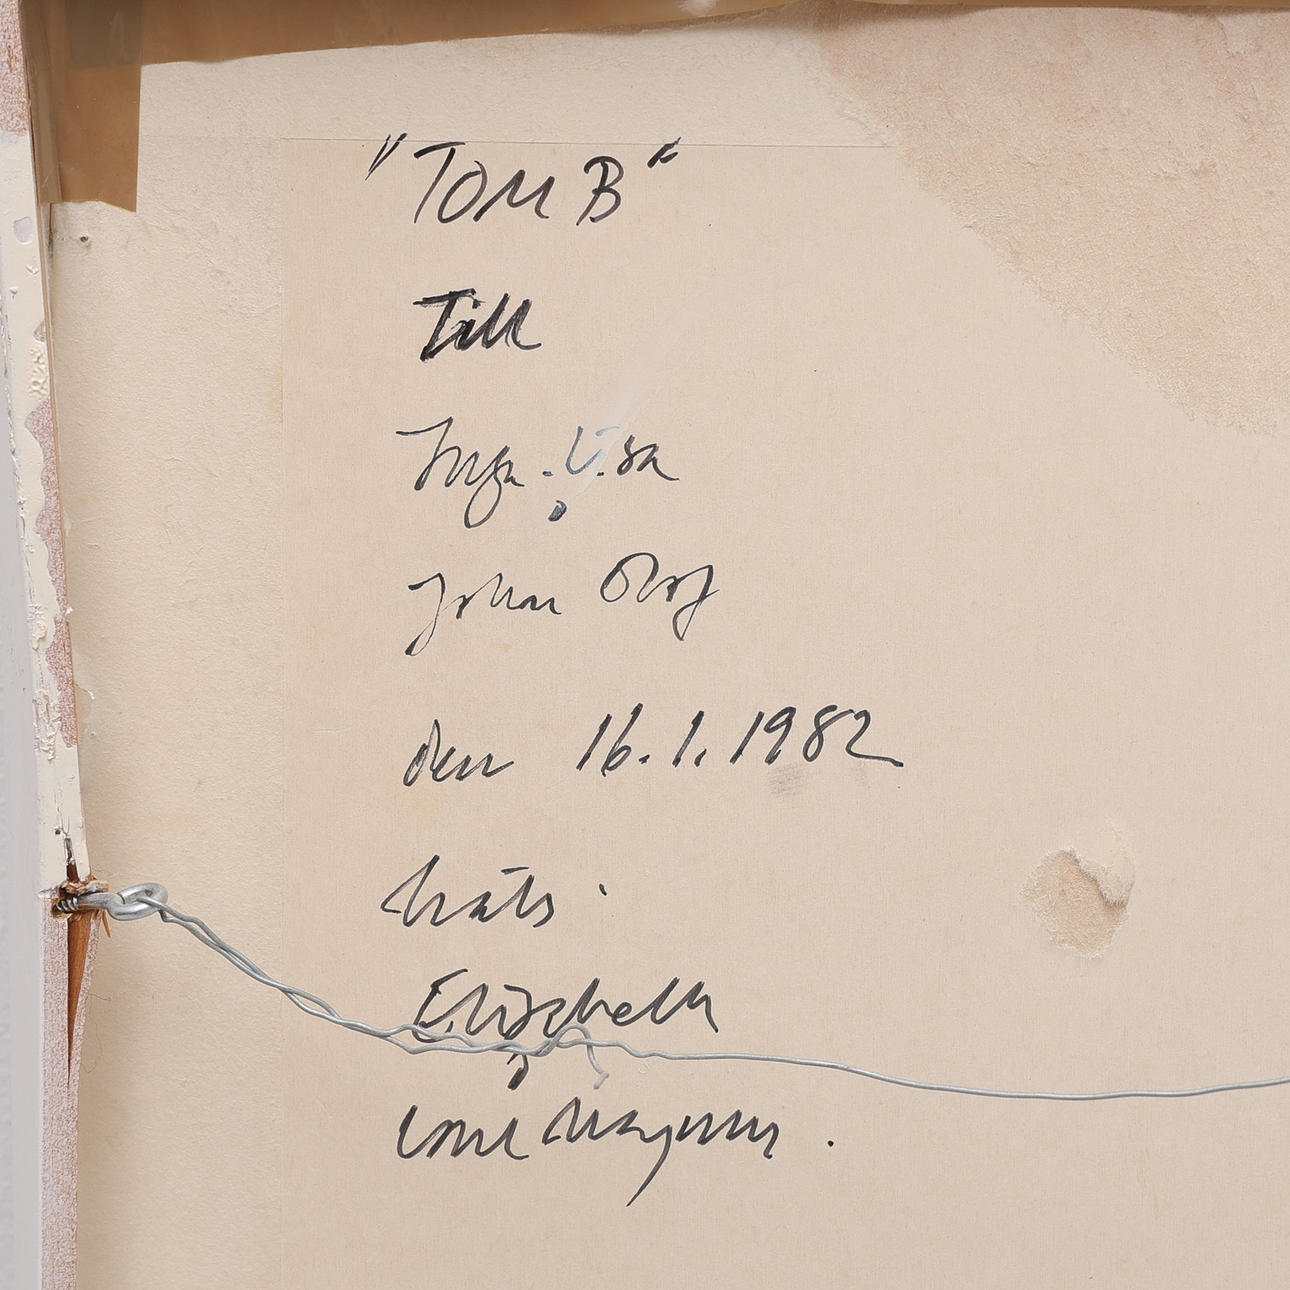 "TOM B"
Till
Inga-Lisa
Johan Olof
den 16.1.1982
Mats.
Elizabeth
Magnus.